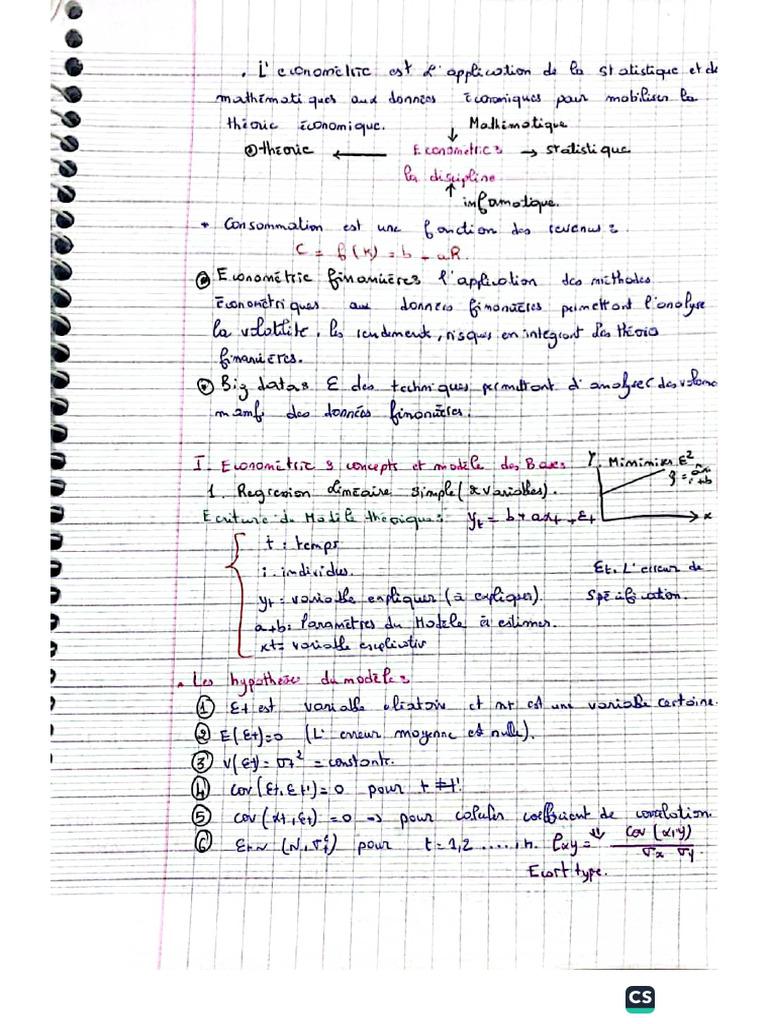 . L'econométrie est l'application de la statistique et de
mathématiques aux données économiques pour mobiliser la
théorie économique.
Mathématique
théorie ← Econométrie → statistique
la discipline
informatique.
* Consommation est une fonction des revenus :
C = f(R) = b + aR.
Econométrie financières l'application des méthodes
économétriques aux données financières permettant l'analyse
la volatilité, les rendements, risques en intégrant les théorie
financières.
Big datas & des techniques permettant d'analyser des volume
manf des données financières.
I. Econométrie & concepts et modèle des Bases
Y Minimiser ε²
ŷ = ax + b
x
1. Regression linéaire simple (2 variables).
Ecriture du Modèle théorique : yt = b + axt + εt
t : temps
i : individus.
εt : L'erreur de
spécification.
yt = variable expliquer (à expliquer)
a+b : Paramètres du Modèle à estimer.
xt = variable explicative
. Les hypothèses du modèle :
① εt est variable aléatoire et xt est une variable certaine.
② E(εt)=0 (L'erreur moyenne est nulle).
③ V(εt) = σt² = constante.
④ cov(εt, εt') = 0 pour t ≠ t'
⑤ cov(xt, εt) = 0 → pour calculer coefficient de corrélation.
⑥ εt ~ (N, σ²ε) pour t = 1,2 ....., n. ρxy = cov(x,y) / σx σy.
Ecart type.
CS